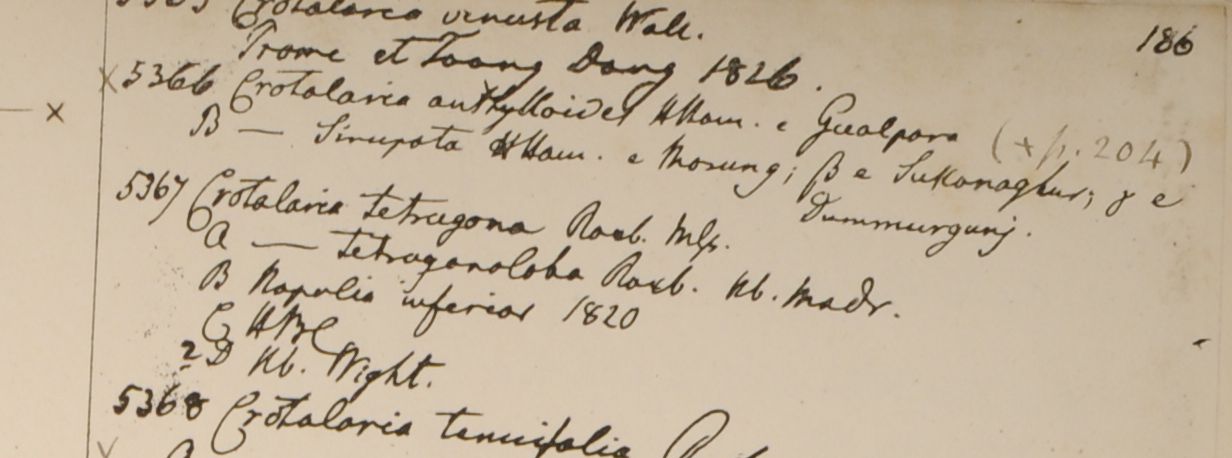 186
5365 Crotalaria venusta Wall.
Prome et Taong Dong 1826.
5366 Crotalaria anthylloides HHam. e Gualpara (+ p. 204)
B — Sirupata HHam. e Morung; β e Sukanaghur; γ e
Dummurgunj.
5367 Crotalaria tetragona Roxb. Mss.
a — tetragonoloba Roxb. Hb. Madr.
B Napalia inferior 1820
C HBC
2 D Hb. Wight.
5368 Crotalaria tenuifolia